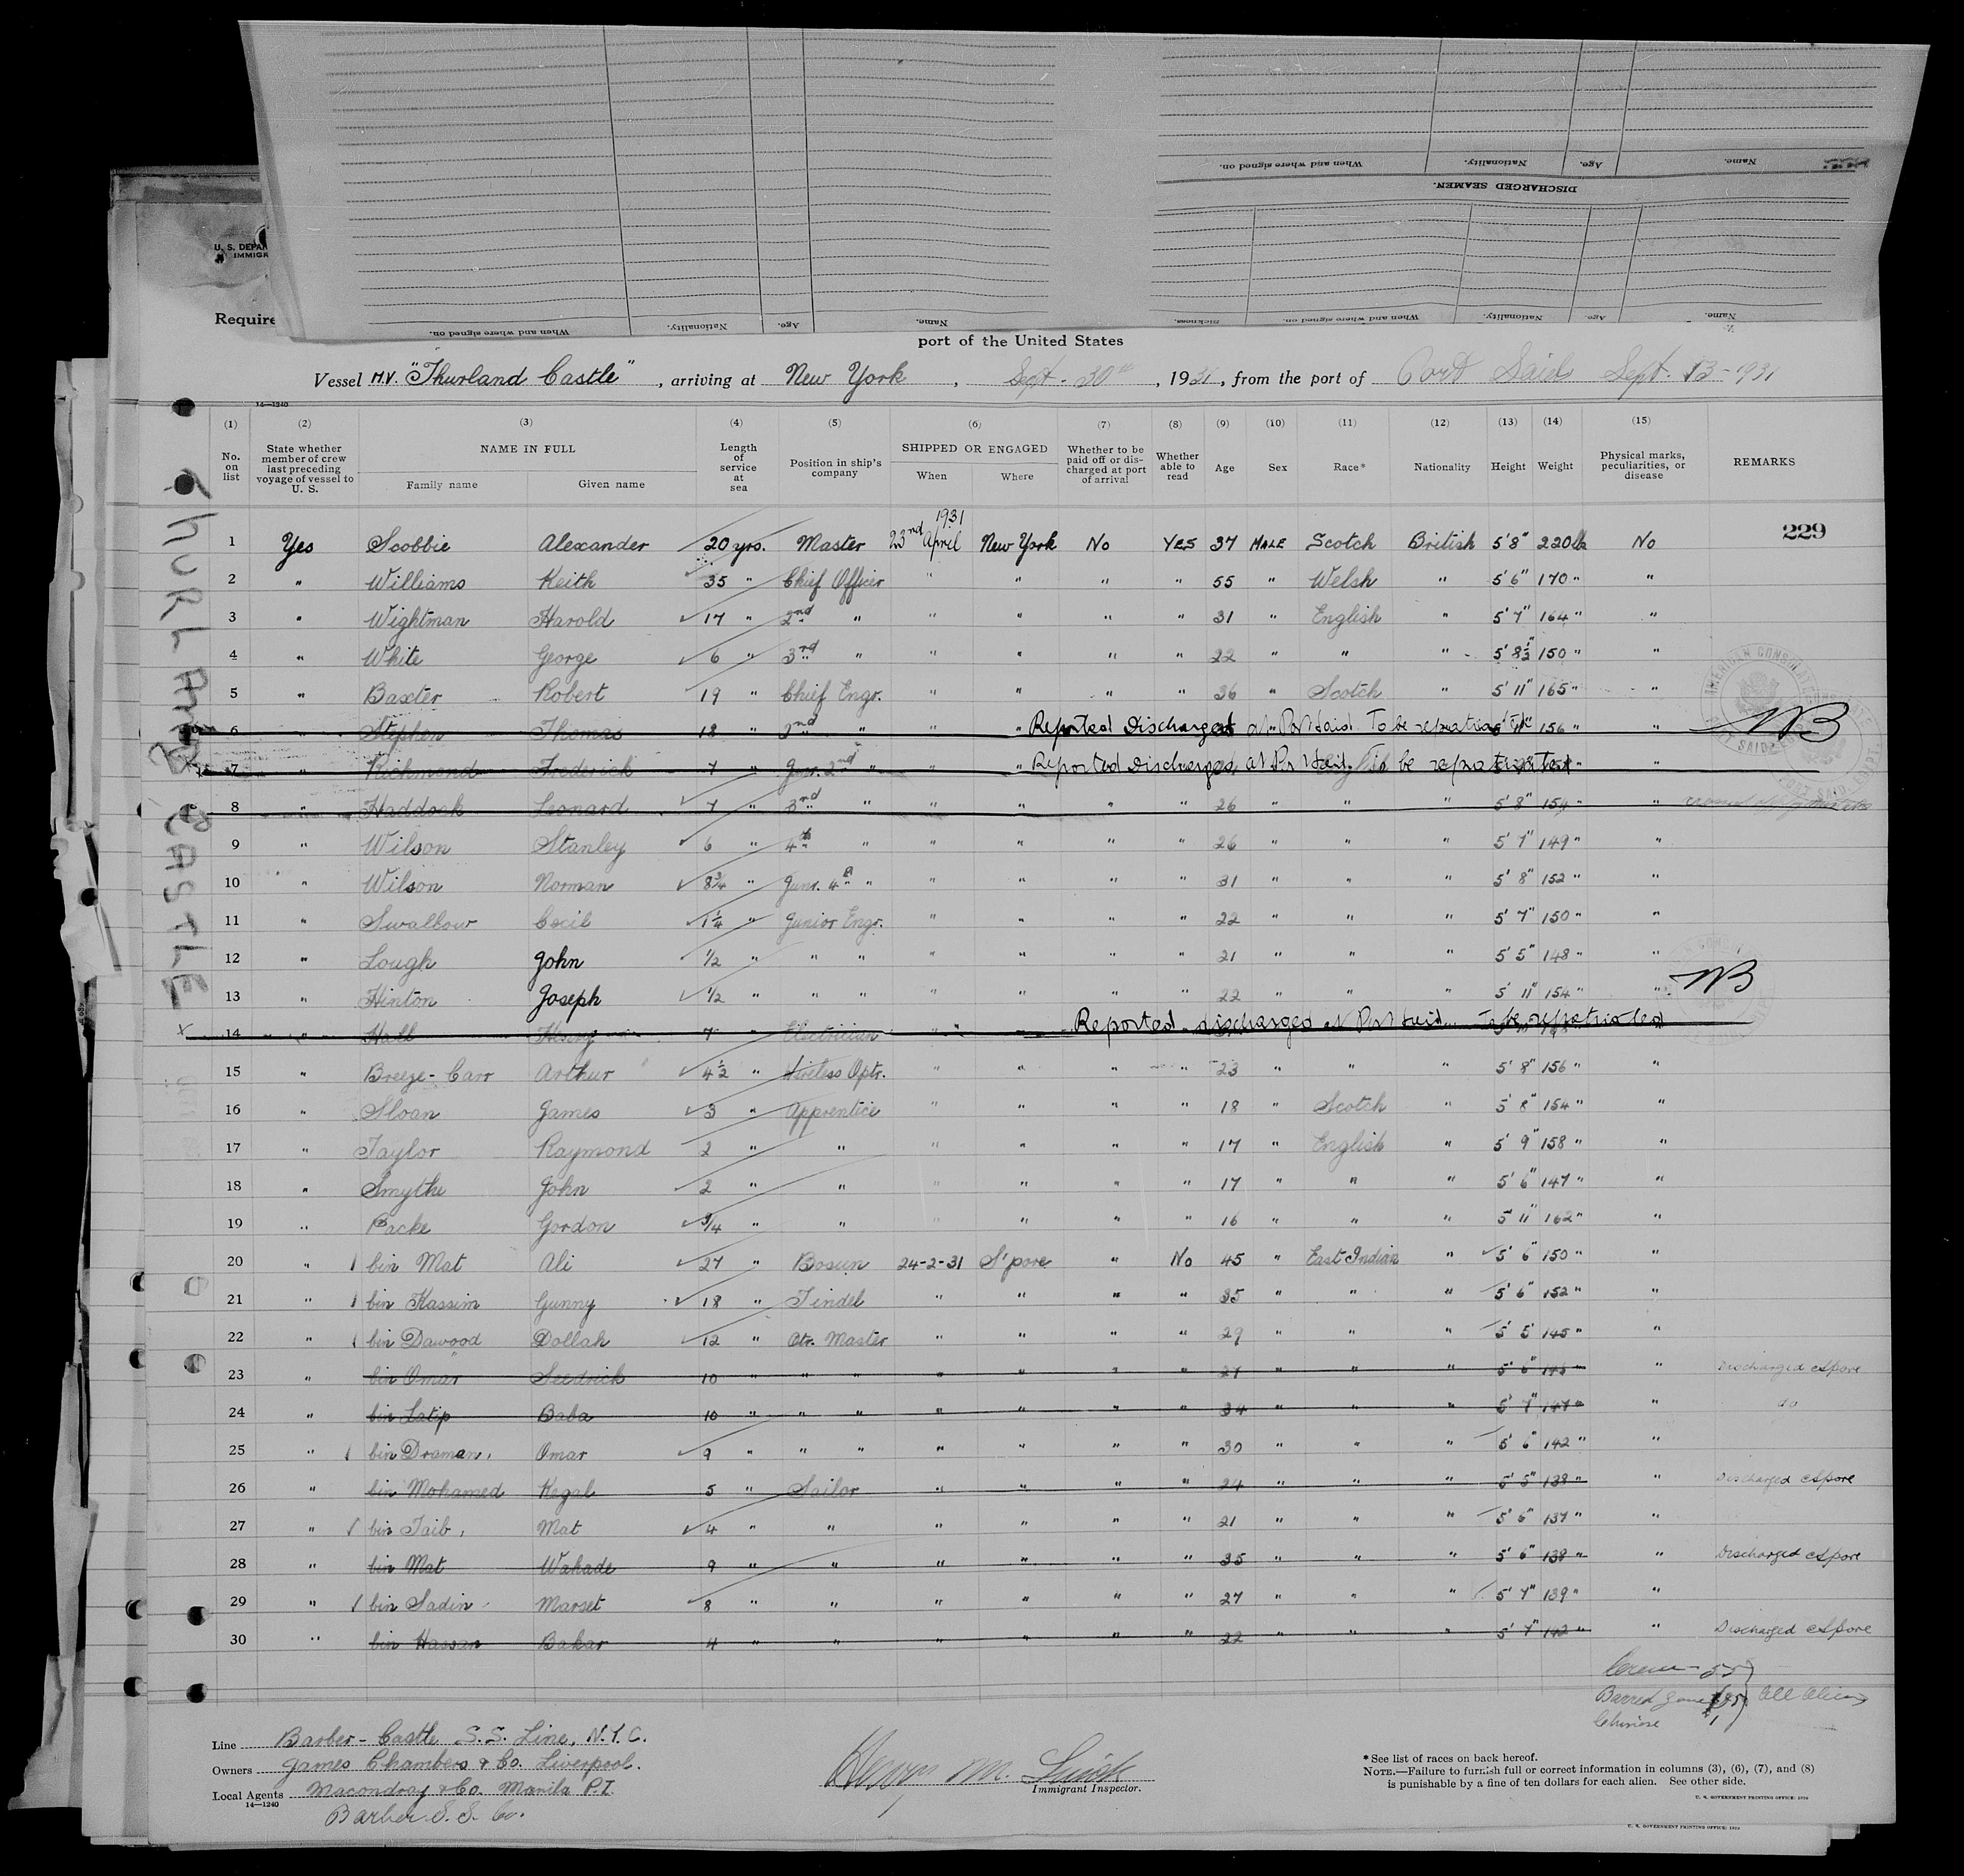 When and where signed on. Nationality. Age. Name.
DISCHARGED SEAMEN.
When and where signed on. Nationality. Age. Name. Sickness. When and where signed on. Nationality. Age. Name.
U. S. DEPA
IMMIGR
Require
port of the United States
Vessel M.V. "Thurland Castle", arriving at New York, Sept. 30th, 1931, from the port of Port Said Sept. 13-1931
14—1240
(1) (2) (3) (4) (5) (6) (7) (8) (9) (10) (11) (12) (13) (14) (15)
No. on list
State whether member of crew last preceding voyage of vessel to U. S.
NAME IN FULL
Family name
Given name
Length of service at sea
Position in ship's company
SHIPPED OR ENGAGED
When
Where
Whether to be paid off or discharged at port of arrival
Whether able to read
Age
Sex
Race*
Nationality
Height
Weight
Physical marks, peculiarities, or disease
REMARKS
THURLAND CASTLE
229
1931
1 Yes Scobbie Alexander 20 yrs. Master 23rd April New York No Yes 37 MALE Scotch British 5'8" 220 lb No
2 " Williams Keith 35 " Chief Officer " " " " 55 " Welsh " 5'6" 170 " "
3 " Wightman Harold 17 " 2nd " " " " " 31 " English " 5'7" 164 " "
4 " White George 6 " 3rd " " " " " 22 " " " 5'8½" 150 " "
5 " Baxter Robert 19 " Chief Engr. " " " " 36 " Scotch " 5'11" 165 " "
6 " Stephen Thomas 18 " 2nd " " " Reported Discharged at Port Said. To be repatriated 156 " "
7 " Richmond Frederick 7 " Junr. 2nd " " " Reported Discharged at Port Said. To be repatriated "
8 " Haddock Leonard 7 " 3rd " " " " " 26 " " " 5'8" 154 " "
9 " Wilson Stanley 6 " 4th " " " " " 26 " " " 5'7" 149 " "
10 " Wilson Norman 8¾ " Junr. 4th " " " " " 31 " " " 5'8" 152 " "
11 " Swalbow Cecil 1¼ " Junior Engr. " " " " 22 " " " 5'7" 150 " "
12 " Lough John ½ " " " " " " " 21 " " " 5'5" 148 " "
13 " Hinton Joseph ½ " " " " " " " 22 " " " 5'11" 154 " "
14 " Hall Henry 7 " Electrician " " Reported discharged at Port Said. To be repatriated
15 " Breeze-Carr Arthur 4½ " Wireless Optr. " " " " 23 " " " 5'8" 156 " "
16 " Sloan James 3 " Apprentice " " " " 18 " Scotch " 5'8" 154 " "
17 " Taylor Raymond 2 " " " " " " 17 " English " 5'9" 158 " "
18 " Smythe John 2 " " " " " " 17 " " " 5'6" 147 " "
19 " Packe Gordon ¾ " " " " " " 16 " " " 5'11" 162 " "
20 " bin Mat Ali 27 " Bosun 24-2-31 S'pore " No 45 " East Indian " 5'6" 150 " "
21 " bin Kassim Gunny 18 " Tindel " " " " 35 " " " 5'6" 152 " "
22 " bin Dawood Dollah 12 " Qtr. Master " " " " 29 " " " 5'5" 145 " "
23 " bin Omar Seedrick 10 " " " " " " " 27 " " " 5'6" 146 " " Discharged Spore
24 " bin Latip Baba 10 " " " " " " " 34 " " " 5'7" 147 " " do
25 " bin Draman Omar 9 " " " " " " " 30 " " " 5'6" 142 " "
26 " bin Mohamed Kegal 5 " Sailor " " " " 24 " " " 5'5" 138 " " Discharged Spore
27 " bin Taib Mat 4 " " " " " " 21 " " " 5'6" 137 " "
28 " bin Mat Wahade 9 " " " " " " 35 " " " 5'6" 138 " " Discharged Spore
29 " bin Sadin Marset 8 " " " " " " 27 " " " 5'7" 139 " "
30 " bin Hassan Bakar 4 " " " " " " 22 " " " 5'7" 142 " " Discharged Spore
Crew - 55
Barred Zone All Aliens
Chinese 1
Line Barber-Castle S.S. Line, N.Y.C.
Owners James Chambers & Co. Liverpool.
Local Agents Macondray & Co. Manila P.I.
14—1240
Barber S.S. Co.
Henry M.
Immigrant Inspector.
*See list of races on back hereof.
NOTE.—Failure to furnish full or correct information in columns (3), (6), (7), and (8)
is punishable by a fine of ten dollars for each alien. See other side.
U. S. GOVERNMENT PRINTING OFFICE
U. S. GOVERNMENT PRINTING OFFICE